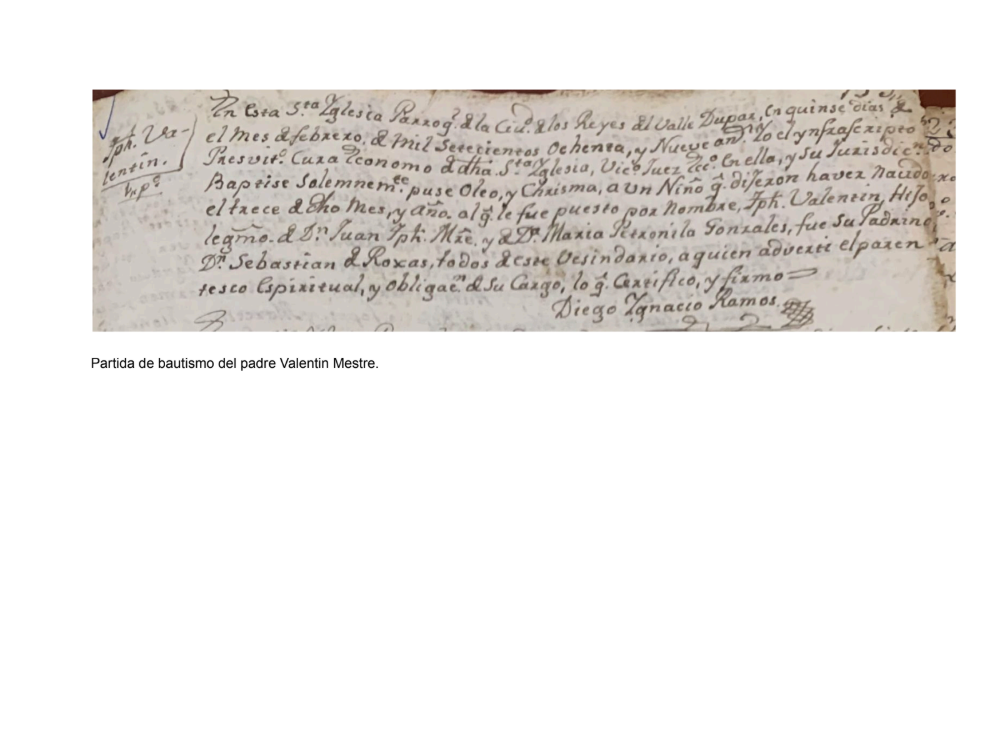 Jph. Va-
lentin.
En esta S.ta Yglesia Parroq.l de la Ciu.d de los Reyes del Valle Dupar, en quinse dias de
el mes de febrero, de mil Setecientos Ochenta, y Nueve an.s Yo el ynfrascripto
Presvit.o Cura Economo de dha. S.ta Yglesia, Vic.o Juez Ecc.o en ella, y su Jurisdic.n
Baptise Solemnem.te puse Oleo, y Chrisma, a un Niño q.e dijeron haver Nacido
el trece de dho Mes, y año. al q.e le fue puesto por Nombre, Jph. Valentin, Hijo
legmo. de D.n Juan Jph. Mre. y de D.a Maria Petronila Gonzales, fue su Padrino
D.n Sebastian de Roxas, todos de este Vesindario, a quien adverti el paren
tesco Espiritual, y obligac.n de su Cargo, lo q.e Certifico, y firmo=
Diego Ygnacio Ramos.
Partida de bautismo del padre Valentin Mestre.